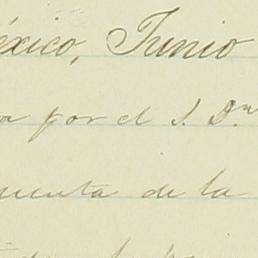 éxico, Junio
a por el S. Dn.
uenta de la